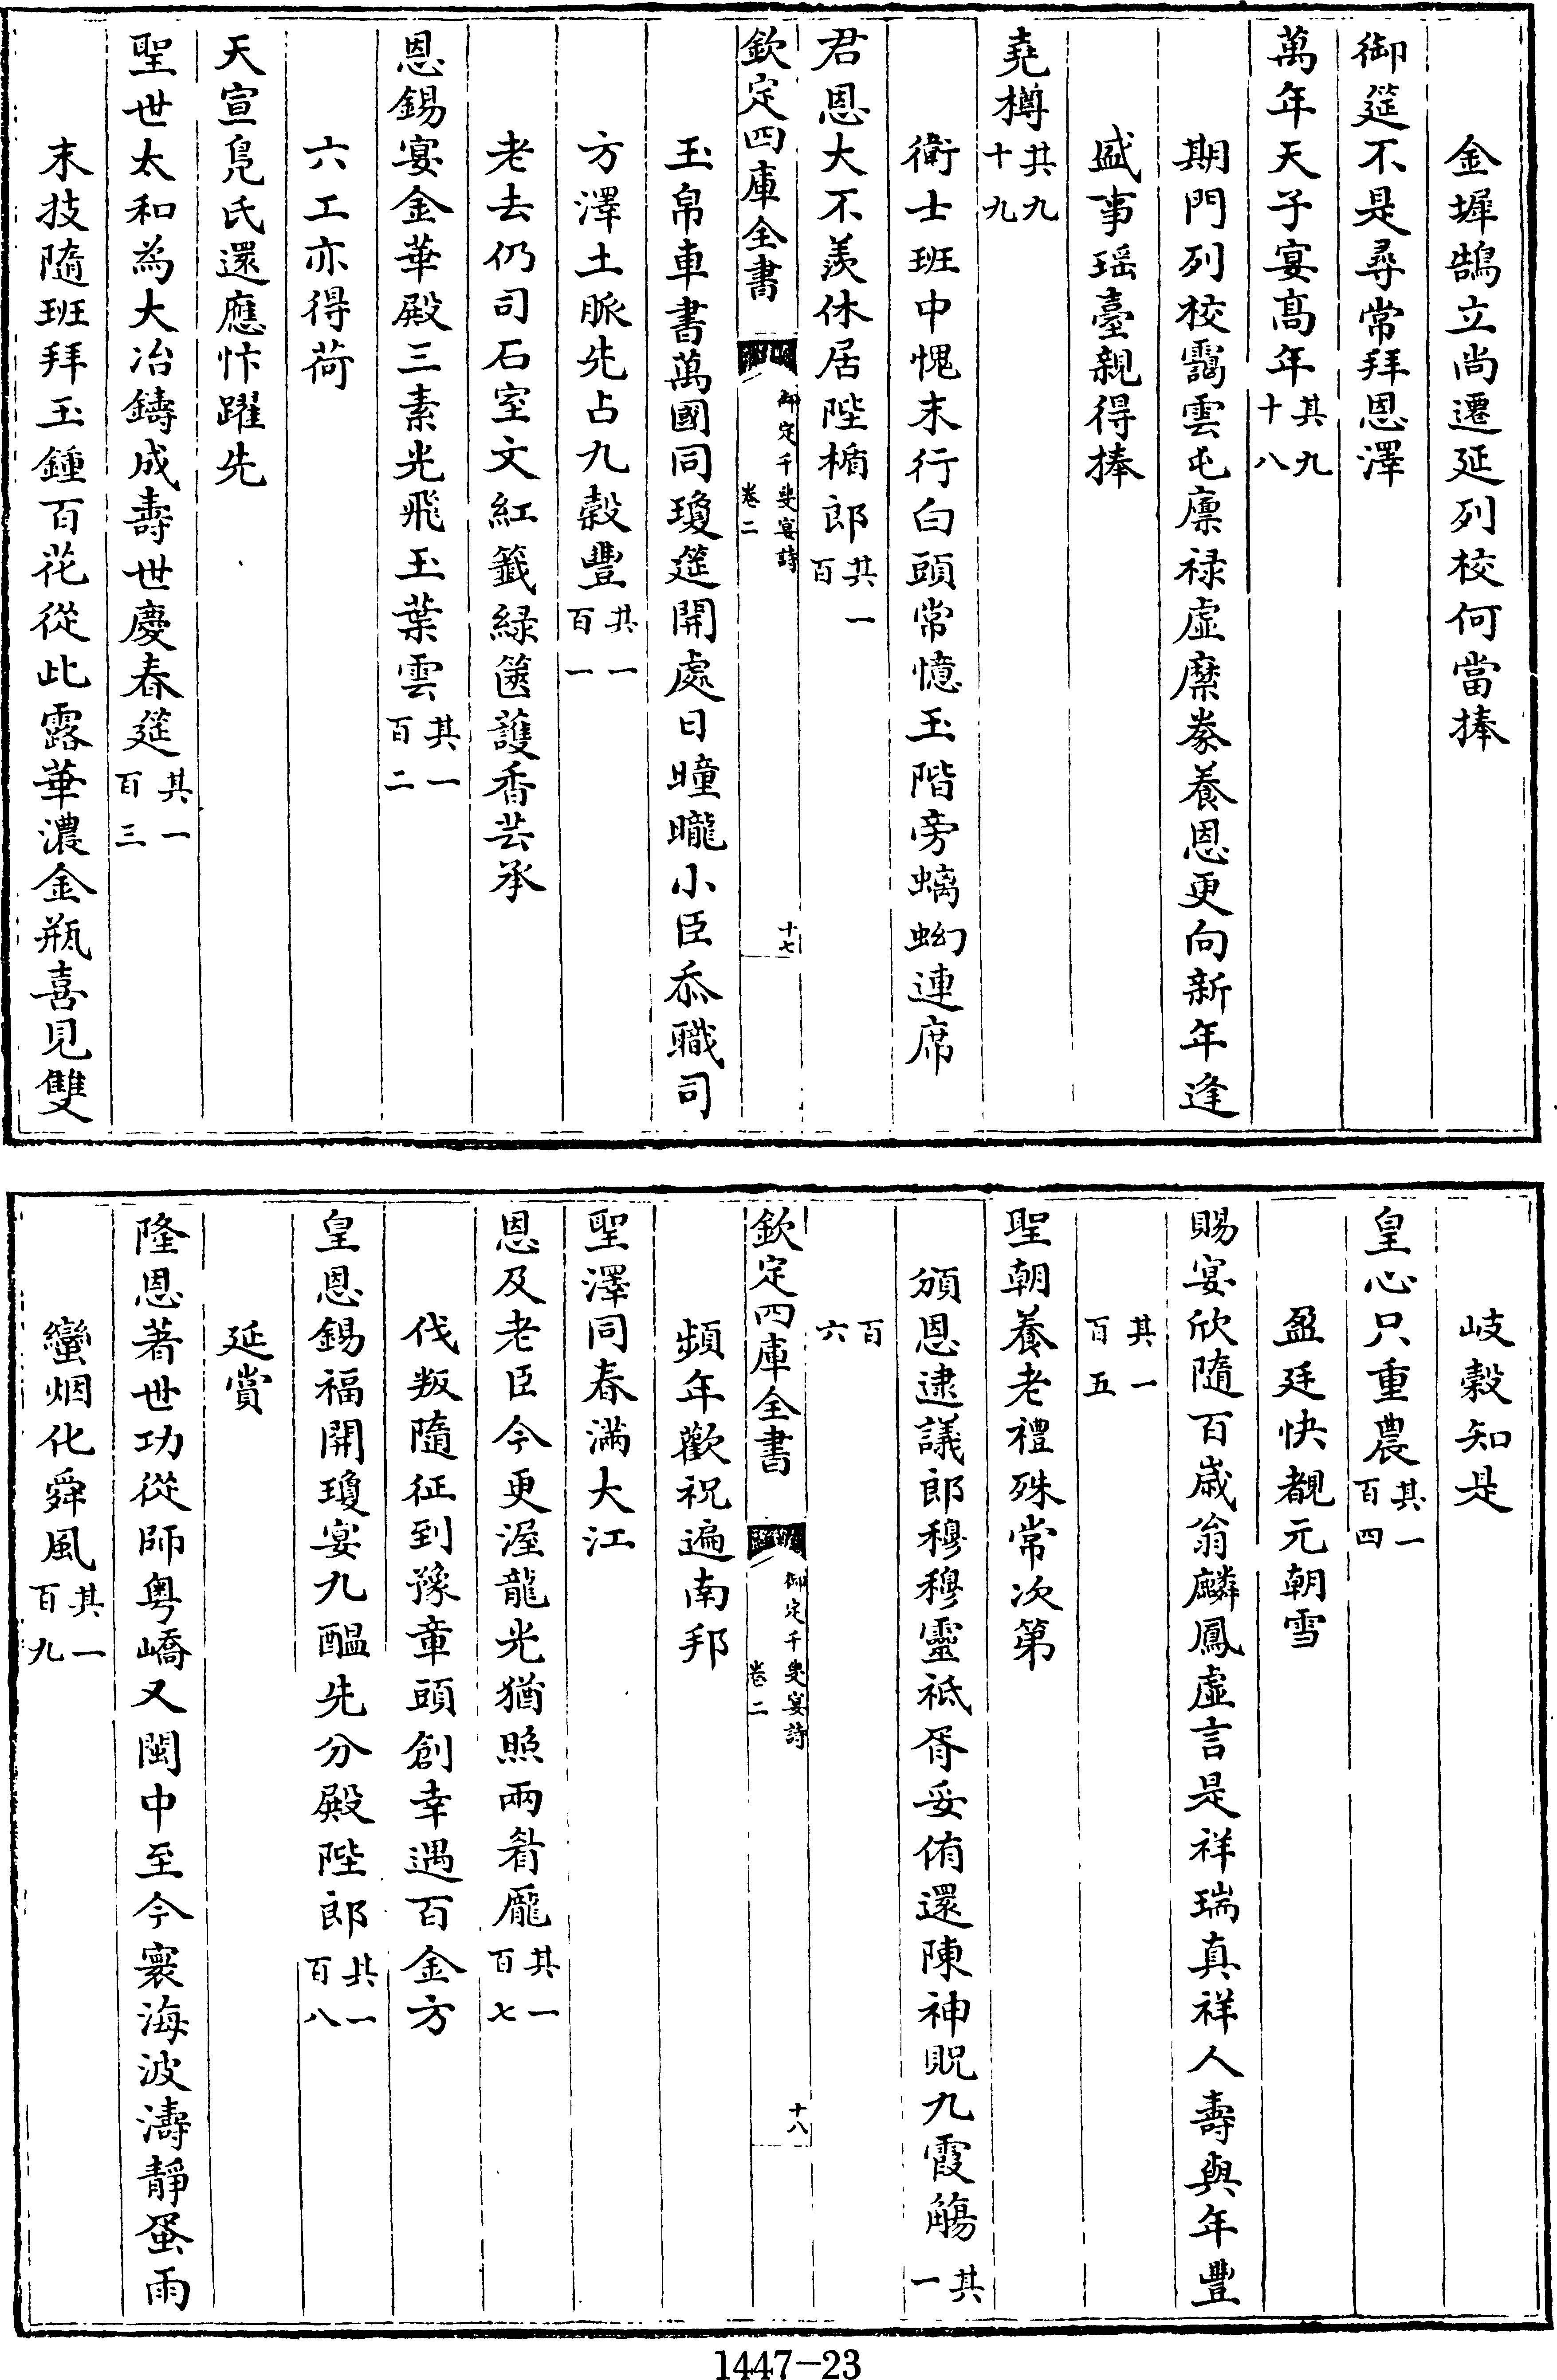 金墀鵠立尚遷延列校何當捧
御筵不是尋常拜恩澤
萬年天子宴高年其九十八
期門列校靄雲屯廪禄虚縻豢養恩更向新年逢
盛事瑶臺親得捧
堯樽其九十九
衛士班中愧末行白頭常憶玉階旁螭蚴連席
君恩大不羨休居陛楯郎其一百
欽定四庫全書
御定千叟宴詩
卷二
十七
玉帛車書萬國同瓊筵開處日曈曨小臣忝職司
方澤土脈先占九穀豐其一百一
老去仍司石室文紅籤緑篋護香芸承
恩錫宴金華殿三素光飛玉葉雲其一百二
六工亦得荷
天宣鳬氏還應忭躍先
聖世太和為大冶鑄成壽世慶春筵其一百三
末技隨班拜玉鍾百花從此露華濃金瓶喜見雙
岐穀知是
皇心只重農其一百四
盈廷快覩元朝雪
賜宴欣隨百歳翁麟鳳虚言是祥瑞真祥人壽與年豐
其一百五
聖朝養老禮殊常次第
頒恩逮議郎穆穆靈祗胥妥侑還陳神貺九霞觴其一
百六
欽定四庫全書
御定千叟宴詩
卷二
十八
頻年歡祝遍南邦
聖澤同春滿大江
恩及老臣今更渥龍光猶照兩眉厖其一百七
伐叛隨征到豫章頭創幸遇百金方
皇恩錫福開瓊宴九醖先分殿陛郎其一百八
延賞
隆恩著世功從師粤嶠又閩中至今寰海波濤靜蜑雨
蠻烟化舜風其一百九
1447-23